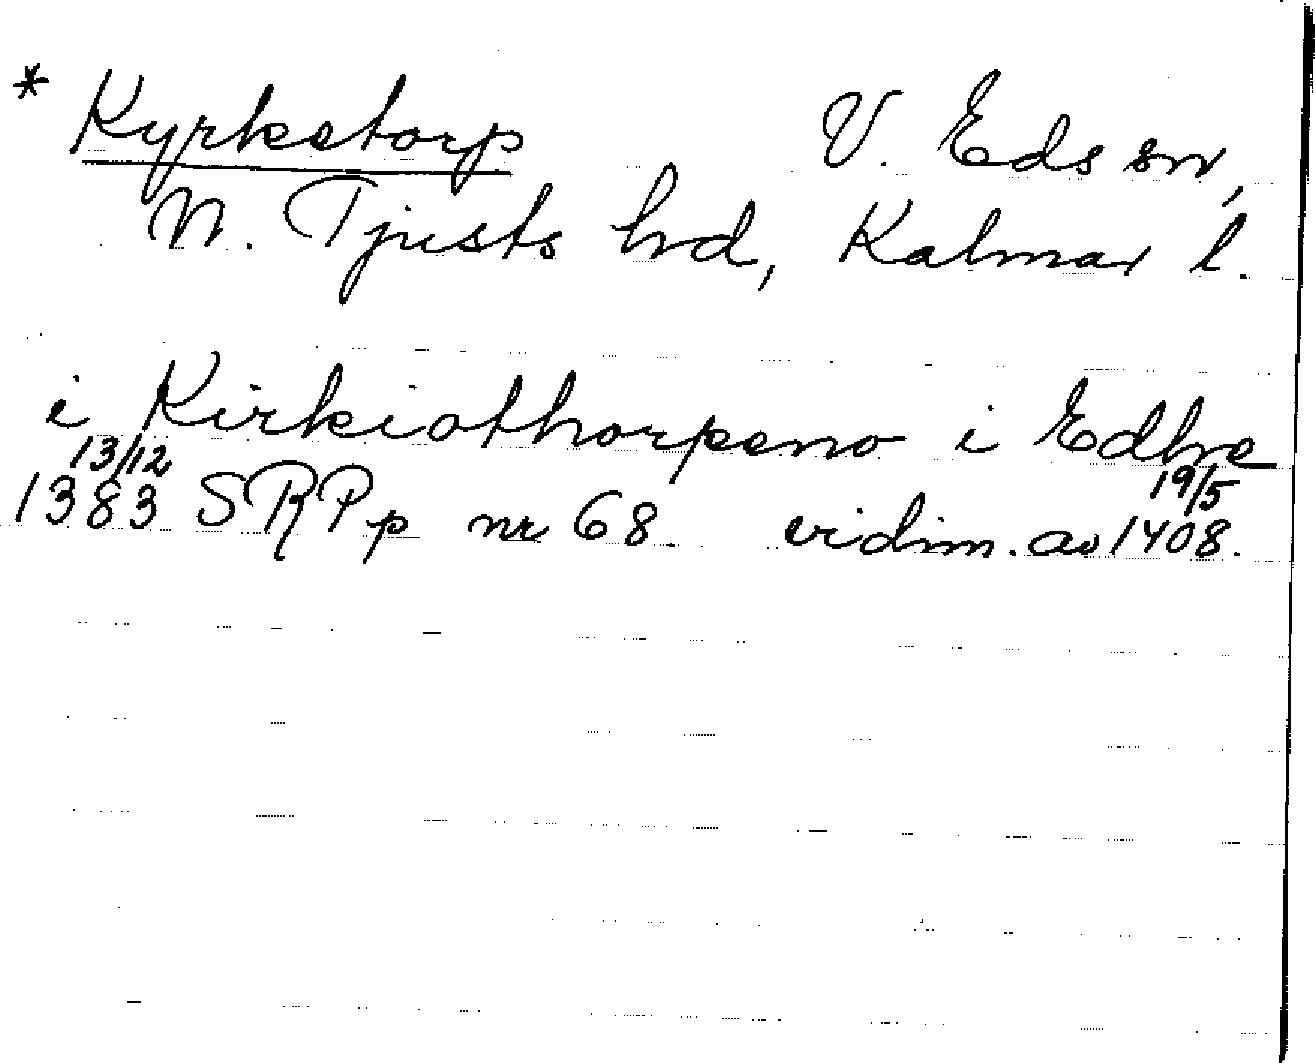 * Kyrketorp V. Eds sn,
N. Tjusts hd, Kalmar l.
i Kirkiothorpeno i Edhe
13/12 19/5
1383 SRPp nr 68 vidim. av 1408.